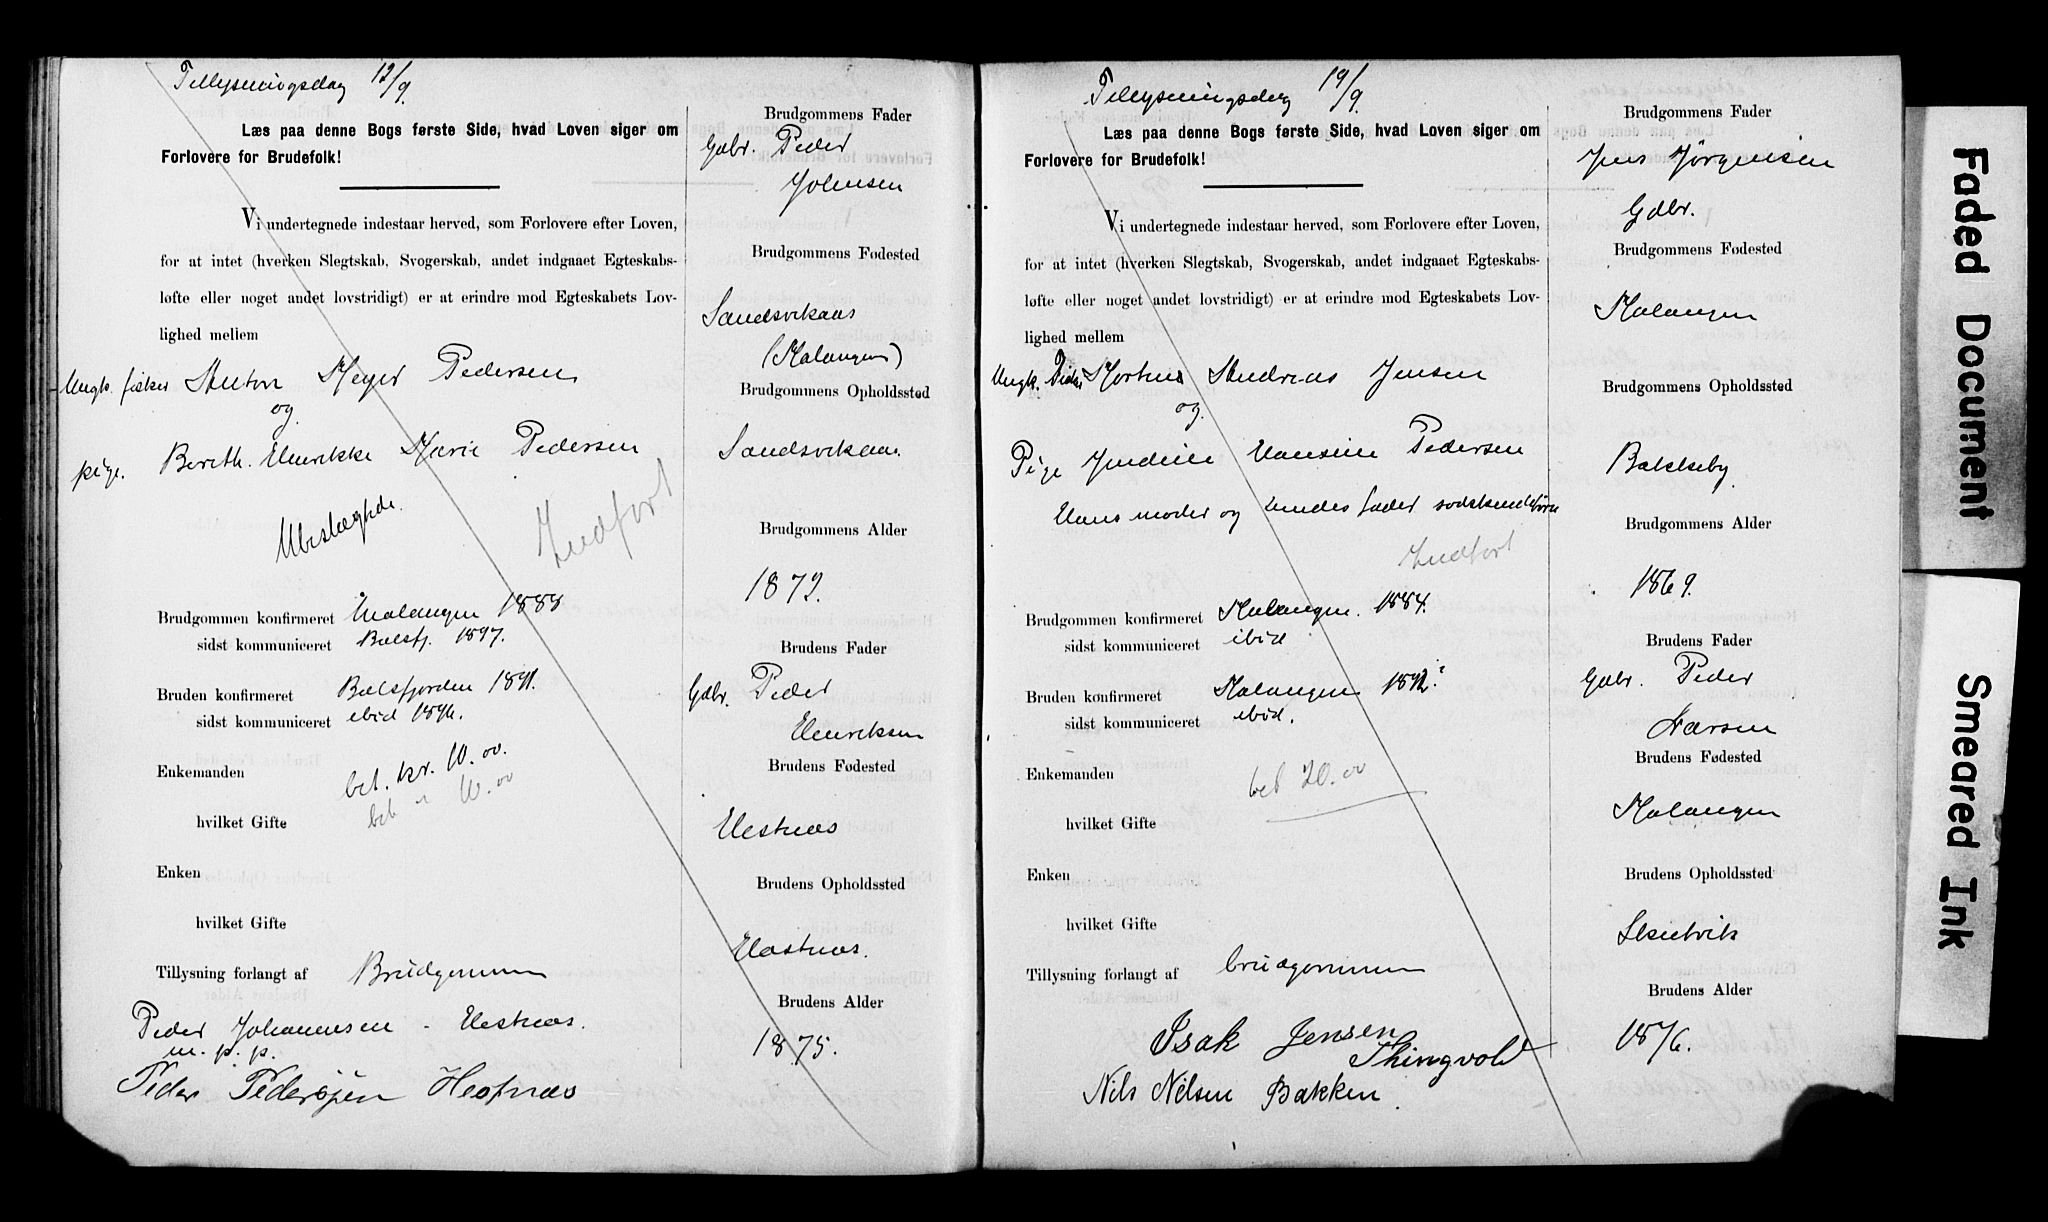 Tillysningsdag 12/9.
Læs paa denne Bogs første Side, hvad Loven siger om
Forlovere for Brudefolk!
Vi undertegnede indestaar herved, som Forlovere efter Loven,
for at intet (hverken Slegtskab, Svogerskab, andet indgaaet Egteskabs-
løfte eller noget andet lovstridigt) er at erindre mod Egteskabets Lov-
lighed mellem
Ungk. fisker Anton Meyer Pedersen
og
pige. Bereth. Henrikke Marie Pedersen
Ubeslægtede.
Indført
Brudgommen konfirmeret Malangen 1888
sidst kommuniceret Balsfj. 1897.
Bruden konfirmeret Balsfjorden 1891.
sidst kommuniceret ibid 1896.
Enkemanden
bet. kr. 10.00.
bet " 10.00
hvilket Gifte
Enken
hvilket Gifte
Tillysning forlangt af Brudgommen
Peder Johannesen - Hestnæs.
m. p. p.
Peder Pedersøen Hestnæs
Brudgommens Fader
Gdbr. Peder
Johnsen
Brudgommens Fødested
Sandsvikaas
(Malangen)
Brudgommens Opholdssted
Sandsvikaas
Brudgommens Alder
1872.
Brudens Fader
Gdbr. Peder
Henriksen
Brudens Fødested
Hestnæs
Brudens Opholdssted
Hestnæs.
Brudens Alder
1875.
Tillysningsdag 19/9.
Læs paa denne Bogs første Side, hvad Loven siger om
Forlovere for Brudefolk!
Vi undertegnede indestaar herved, som Forlovere efter Loven,
for at intet (hverken Slegtskab, Svogerskab, andet indgaaet Egteskabs-
løfte eller noget andet lovstridigt) er at erindre mod Egteskabets Lov-
lighed mellem
Ungk. Fisker Morten Andreas Jensen
og
Pige Jndine Hansine Pedersen
Hans moder og hendes fader sødskendebørn
Indført
Brudgommen konfirmeret Malangen. 1884.
sidst kommuniceret ibid
Bruden konfirmeret Malangen 1892.?
sidst kommuniceret ibid.
Enkemanden
bet 20.00
hvilket Gifte
Enken
hvilket Gifte
Tillysning forlangt af brudgommen
Isak Jensen
Thingvold
Nils Nilsen Bakken.
Brudgommens Fader
Jens Jørgensen
Gdbr.
Brudgommens Fødested
Malangen
Brudgommens Opholdssted
Bakkeby
Brudgommens Alder
1869.
Brudens Fader
Gdbr. Peder
Larsen
Brudens Fødested
Malangen
Brudens Opholdssted
Skutvik
Brudens Alder
1876.
Faded Document
Smeared Ink